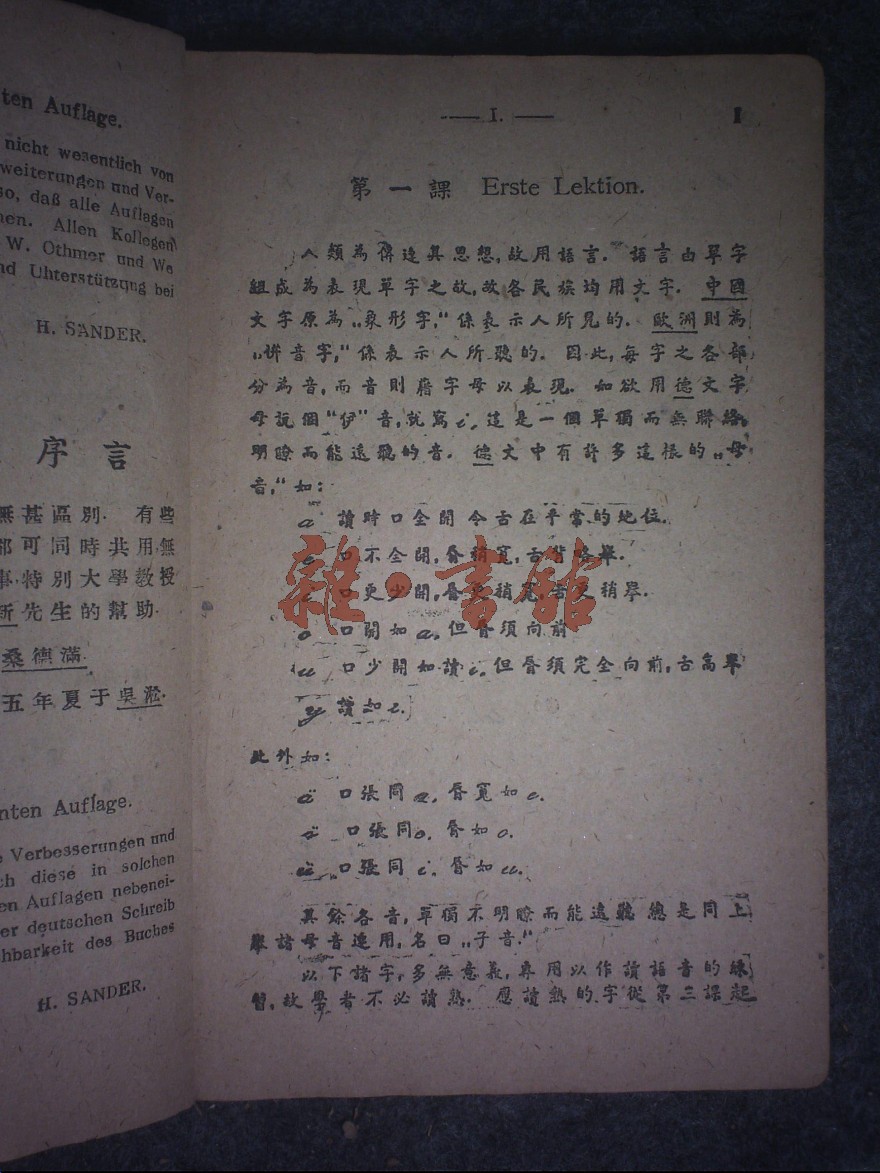 ten Auflage.
nicht wesentlich von
weiterungen und Ver-
so, daß alle Auflagen
nen. Allen Kollegen
W. Othmer und We
nd Uhterstützqug bei
H. SANDER.
序言
無甚區別. 有些
都可同時共用,無
事,特別大學教授
新先生的幫助.
桑德滿.
五年夏于吳淞.
nten Auflage.
e Verbesserungen und
ch diese in solchen
en Auflagen nebenei-
er deutschen Schreib
hbarkeit des Buches
H. SANDER.
— I. —
1
第一課 Erste Lektion.
人類為傳達其思想,故用語言. 語言由單字
組成為表現單字之故,故各民族均用文字. 中國
文字原為„象形字,“係表示人所見的. 歐洲則為
„拼音字,“係表示人所聽的. 因此,每字之各部
分為音,而音則藉字母以表現. 如欲用德文字
母說個“伊”音,就寫i,這是一個單獨而無聯絡,
明瞭而能遠聽的音. 德文中有許多這樣的„母
音,“如:
a 讀時口全開令舌在平常的地位.
e 口不全開,唇稍寬,舌背略舉.
i 口更少開,唇更稍寬,舌更稍舉.
o 口開如a,但唇須向前
u 口少開如讀i,但唇須完全向前,舌高舉
y 讀如i.
此外如:
ä 口張同a,唇寬如e.
ö 口張同o,唇如o.
ü 口張同i,唇如u.
其餘各音,單獨不明瞭而能遠聽總是同上
舉諸母音連用,名曰„子音.“
以下諸字,多無意義,專用以作讀語音的練
習,故學者不必讀熟. 應讀熟的字從第三課起
雜·書館